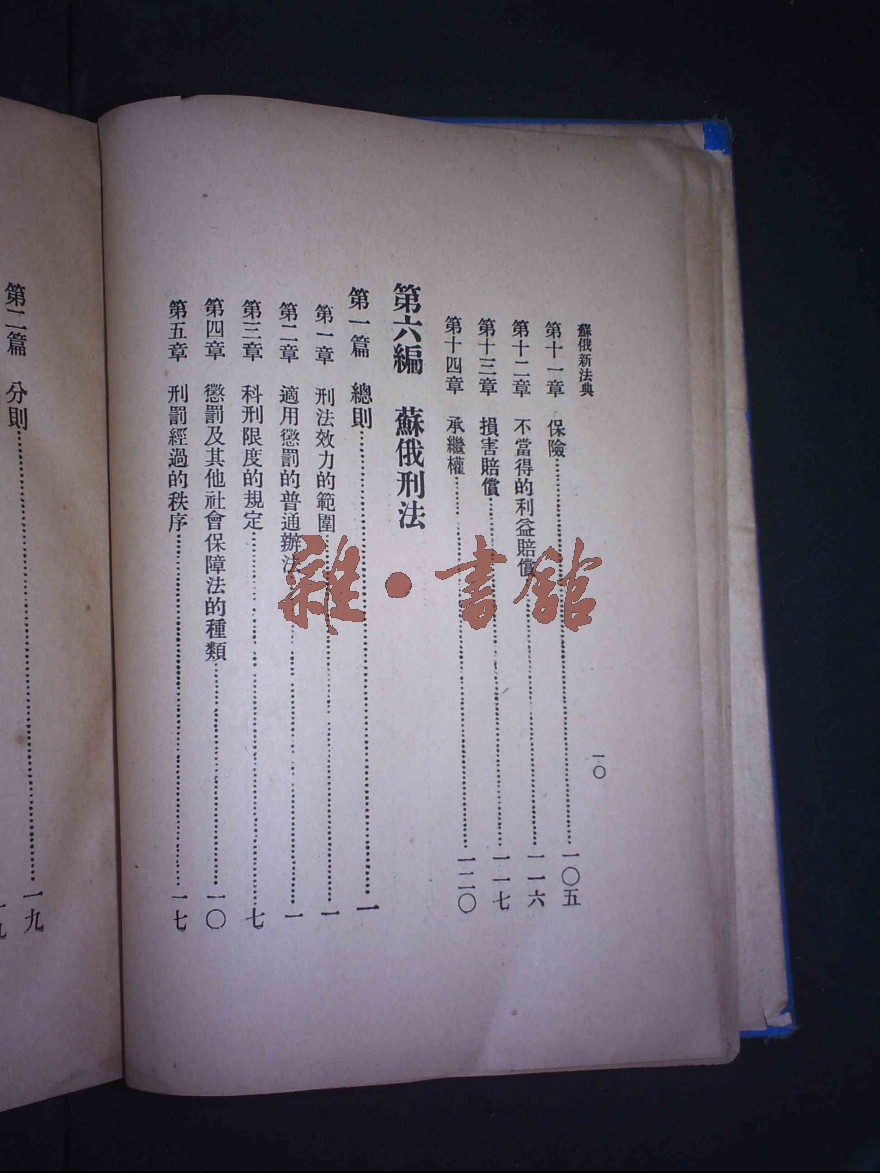 蘇俄新法典
一〇
第十一章 保險……一〇五
第十二章 不當得的利益賠償……一一六
第十三章 損害賠償……一一七
第十四章 承繼權……一二〇
第六編 蘇俄刑法
第一篇 總則……一
第一章 刑法效力的範圍……一
第二章 適用懲罰的普通辦法……一
第三章 科刑限度的規定……七
第四章 懲罰及其他社會保障法的種類……一〇
第五章 刑罰經過的秩序……一七
第二篇 分則……一九
一九
雜·書館